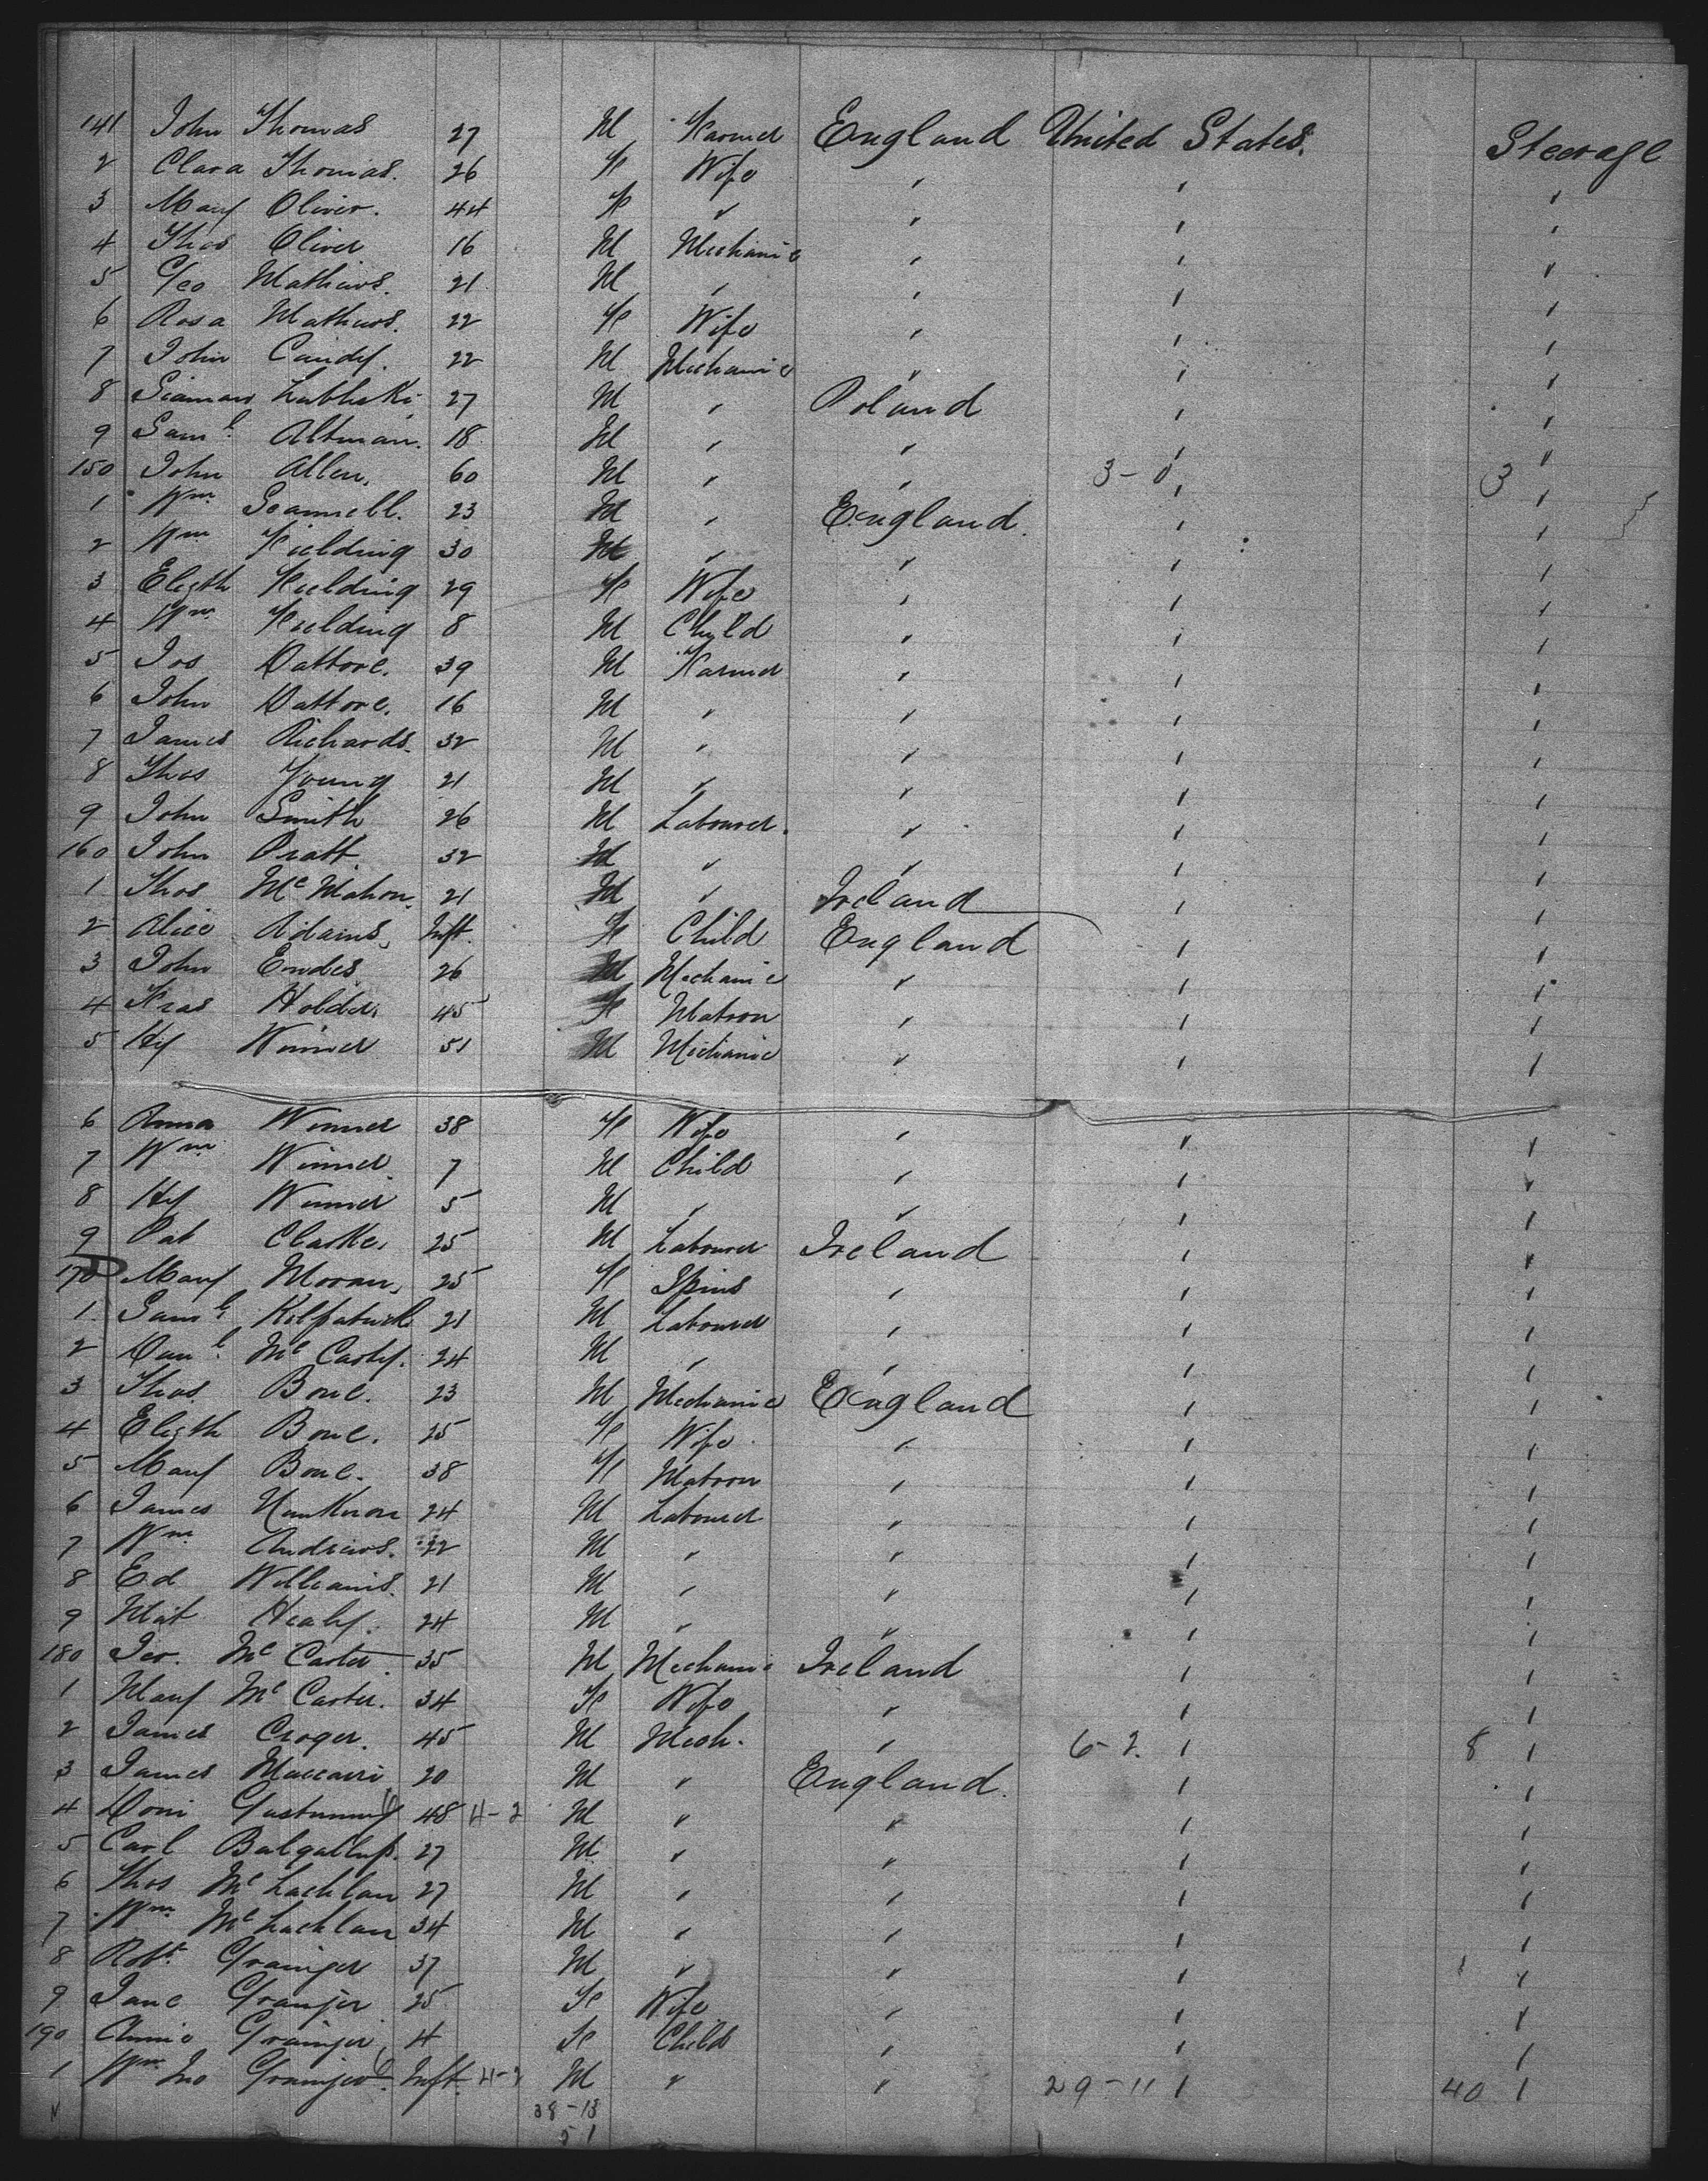 141 John Thomas 27 M Farmer England United States. Steerage
2 Clara Thomas. 26 F Wife " " "
3 Mary Oliver. 44 F " " " "
4 Thos Oliver 16 M Mechanic " " "
5 Geo Mathews. 21 M " " " "
6 Rosa Mathews. 22 F Wife " " "
7 John Candy. 22 M Mechanic " " "
8 27 M " Poland " "
9 Saml. Altman. 18 M " " " "
150 John Allen. 60 M " " 3-0 " 3 "
1 Wm. Scannell. 23 M " England. " "
2 Wm Fielding 30 M " " " "
3 Elizth Fielding 29 F Wife " " "
4 Wm. Fielding 8 M Child " " "
5 Jos Dattore. 39 M Farmer " " "
6 John Dattore. 16 M " " " "
7 James Richards. 32 M " " " "
8 Thos Young 21 M " " " "
9 John Smith 26 M Labourer. " " "
160 John Pratt. 32 M " " " "
1 Thos McMahon. 21 M " Ireland " "
2 Alice Adams, Inft. F Child England " "
3 John Endes 26 M Mechanic " " "
4 Fras Holder. 45 F Matron " " "
5 Hy Winner 51 M Mechanic " " "
6 Anna Winner 38 F Wife " " "
7 Wm Winner 7 M Child " " "
8 Hy Winner 5 M " " " "
9 Pat Clarke. 25 M Labourer Ireland " "
170 Mary Moran, 25 F Spins " " "
1 Saml. Kilpatrick 21 M Labourer " " "
2 Danl. McCarty. 24 M " " " "
3 Thos. Bone. 23 M Mechanic England " "
4 Elizth Bone. 25 F Wife " " "
5 Mary Bone. 38 F Matron " " "
6 James 24 M Labourer " " "
7 Wm Andrews. 22 M " " " "
8 Ed Williams. 21 M " " " "
9 Mat Healy. 24 M " " " "
180 Jer. McCarter 35 M Mechanic Ireland " "
1 Mary McCarter. 34 F Wife " " "
2 James Croger. 45 M Mech. " 6-2. " 8 "
3 James 20 M " England. " "
4 48 4-2 M " " " "
5 Carl 27 M " " " "
6 Thos McLachlan 27 M " " " "
7 Wm. McLachlan 34 M " " " "
8 Robt. Grainger 37 M " " " "
9 Jane Grainger 25 F Wife " " "
190 Annie Grainger 4 F Child " " "
1 Wm. Jno Grainger. Inft. 4-2 M " " 29-11 " 40 "
38-13
51